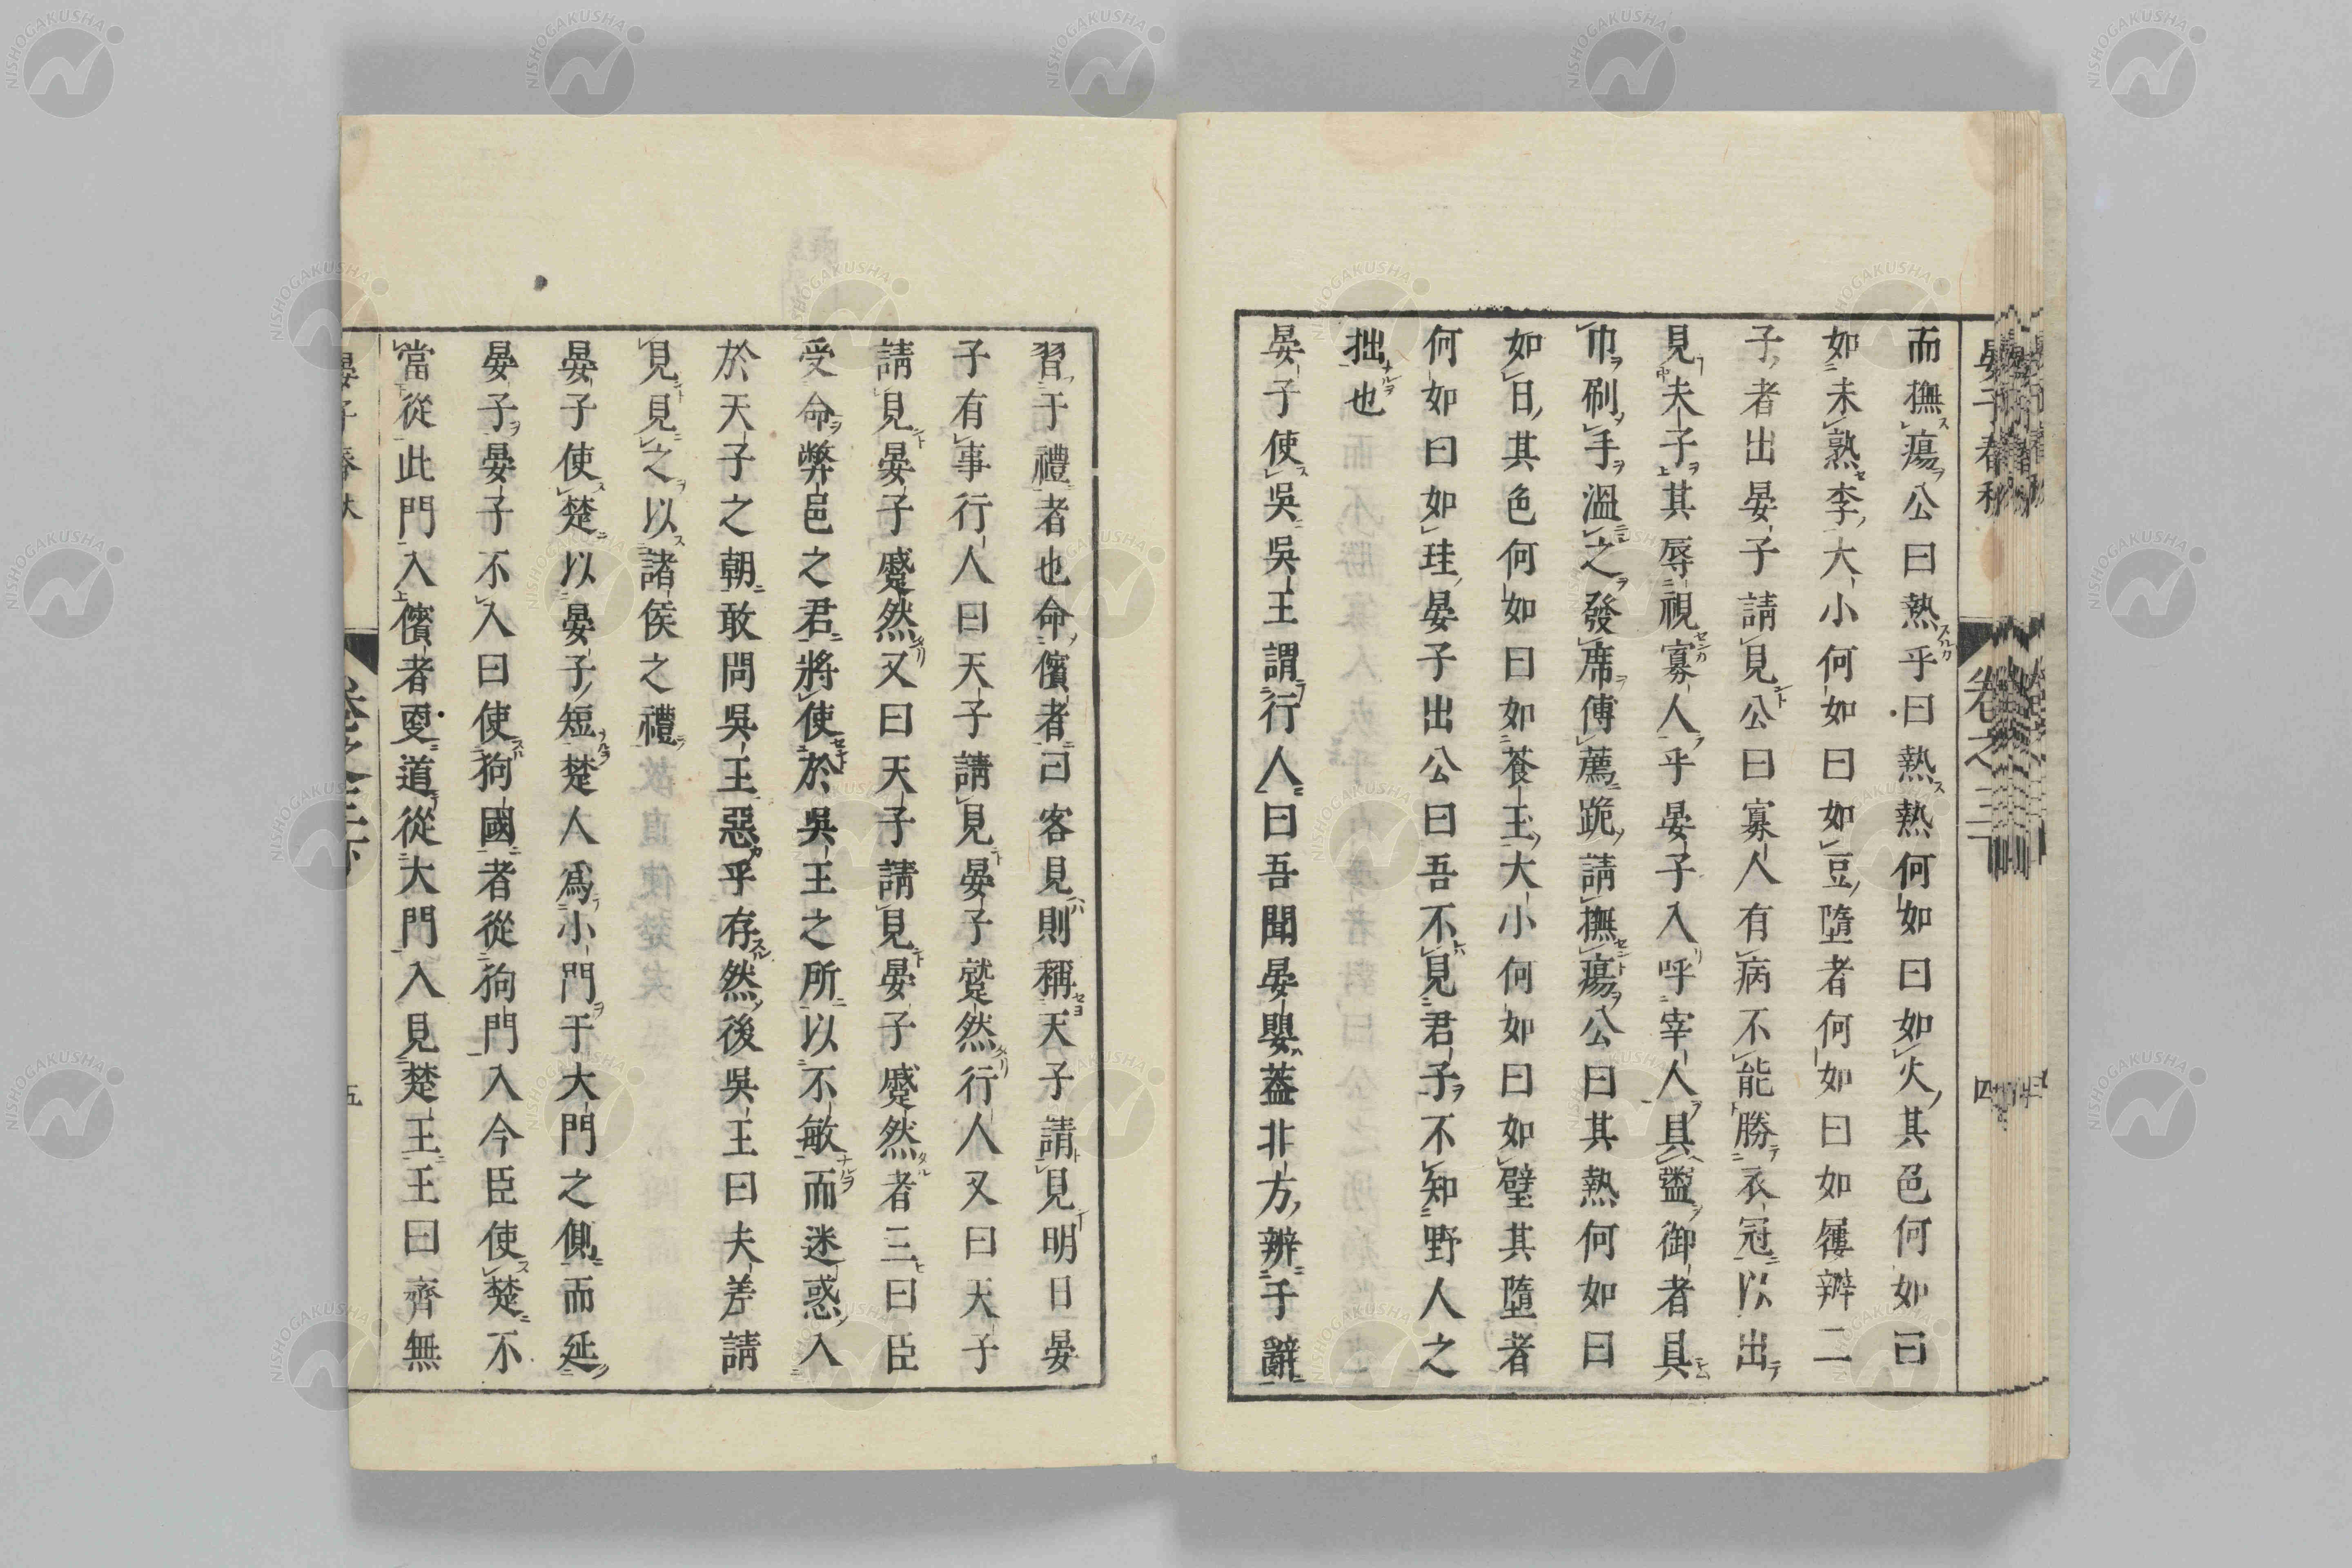 而撫瘍公曰熱乎曰熱熱何如曰如火其色何如曰
如未熟李大小何如曰如豆墮者何如曰如屨辨二
子者出晏子請見公曰寡人有病不能勝衣冠以出
見夫子其辱視寡人乎晏子入呼宰人具盥御者具
巾刷手溫之發席傅薦跪請撫瘍公曰其熱何如曰
如日其色何如曰如蒼玉大小何如曰如璧其墮者
何如曰如珪晏子出公曰吾不見君子不知野人之
拙也
晏子使吳吳王謂行人曰吾聞晏嬰蓋北方辨于辭
習于禮者也命儐者曰客見則稱天子請見明日晏
子有事行人曰天子請見晏子蹵然行人又曰天子
請見晏子蹙然又曰天子請見晏子蹙然者三曰臣
受命弊邑之君將使於吳王之所以不敏而迷惑入
於天子之朝敢問吳王惡乎存然後吳王曰夫差請
見見之以諸侯之禮
晏子使楚以晏子短楚人爲小門于大門之側而延
晏子晏子不入曰使狗國者從狗門入今臣使楚不
當從此門入儐者更道從大門入見楚王王曰齊無
晏子春秋
卷之三
四
五
NISHOGAKUSHA